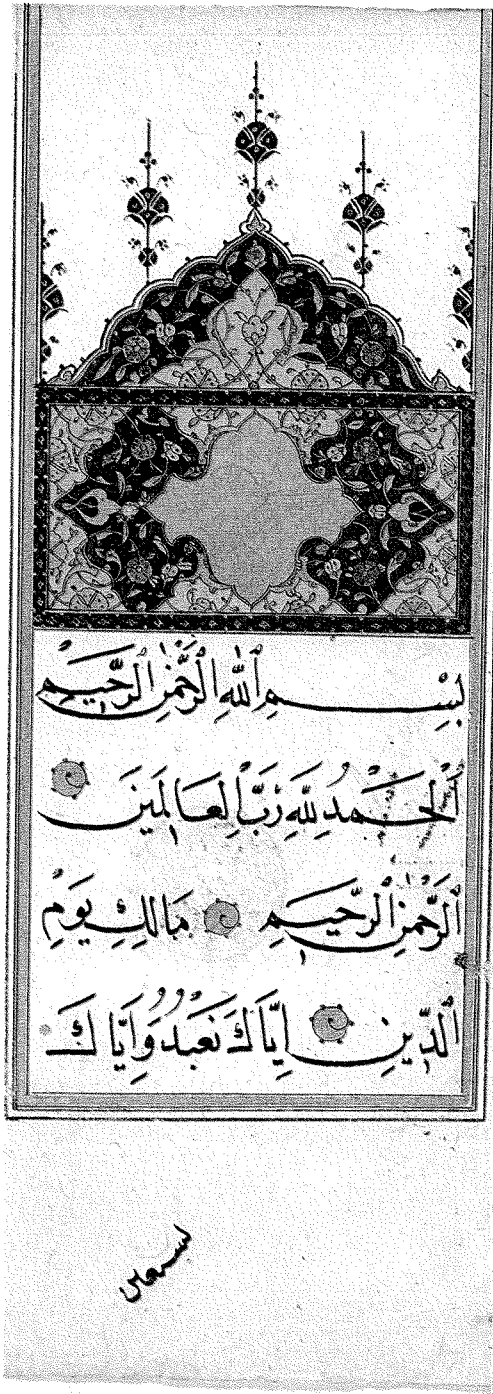 بِسْمِ ٱللَّهِ ٱلرَّحْمَٰنِ ٱلرَّحِيمِ
ٱلْحَمْدُ لِلَّهِ رَبِّ ٱلْعَالَمِينَ
ٱلرَّحْمَٰنِ ٱلرَّحِيمِ مَالِكِ يَوْمِ
ٱلدِّينِ إِيَّاكَ نَعْبُدُ وَإِيَّاكَ
نستعين